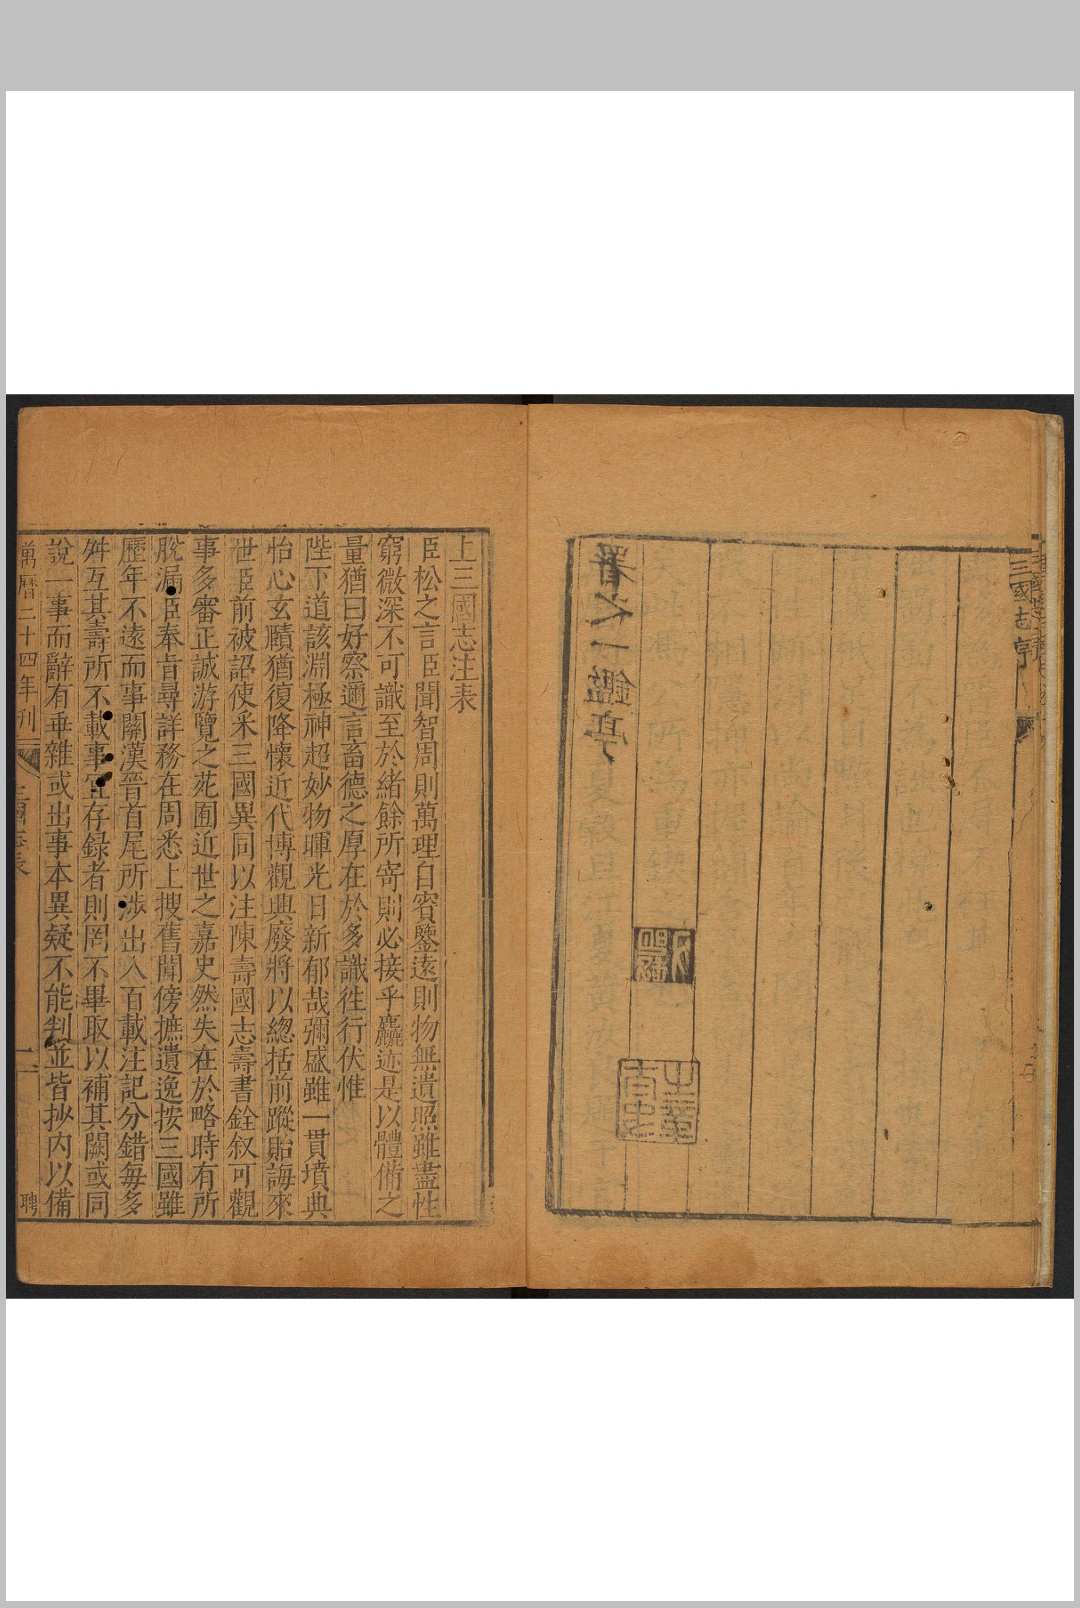 三國志序
署之一鑑亭
上三國志注表
臣松之言臣聞智周則萬理自賓鑒遠則物無遺照雖盡性
窮微深不可識至於緒餘所寄則必接乎麤迹是以體備之
量猶曰好察邇言畜德之厚在於多識往行伏惟
陛下道該淵極神超妙物暉光日新郁哉彌盛雖一貫墳典
怡心玄賾猶復降懷近代博觀興廢將以總括前蹤貽誨來
世臣前被詔使采三國異同以注陳壽國志壽書銓叙可觀
事多審正誠游覽之苑囿近世之嘉史然失在於略時有所
脫漏臣奉旨尋詳務在周悉上搜舊聞傍摭遺逸按三國雖
歷年不遠而事關漢晉首尾所涉出入百載注記分錯每多
舛互其壽所不載事宜存録者則罔不畢取以補其闕或同
說一事而辭有乖雜或出事本異疑不能判並皆抄内以備
萬曆二十四年刊
三國志表
一
聘